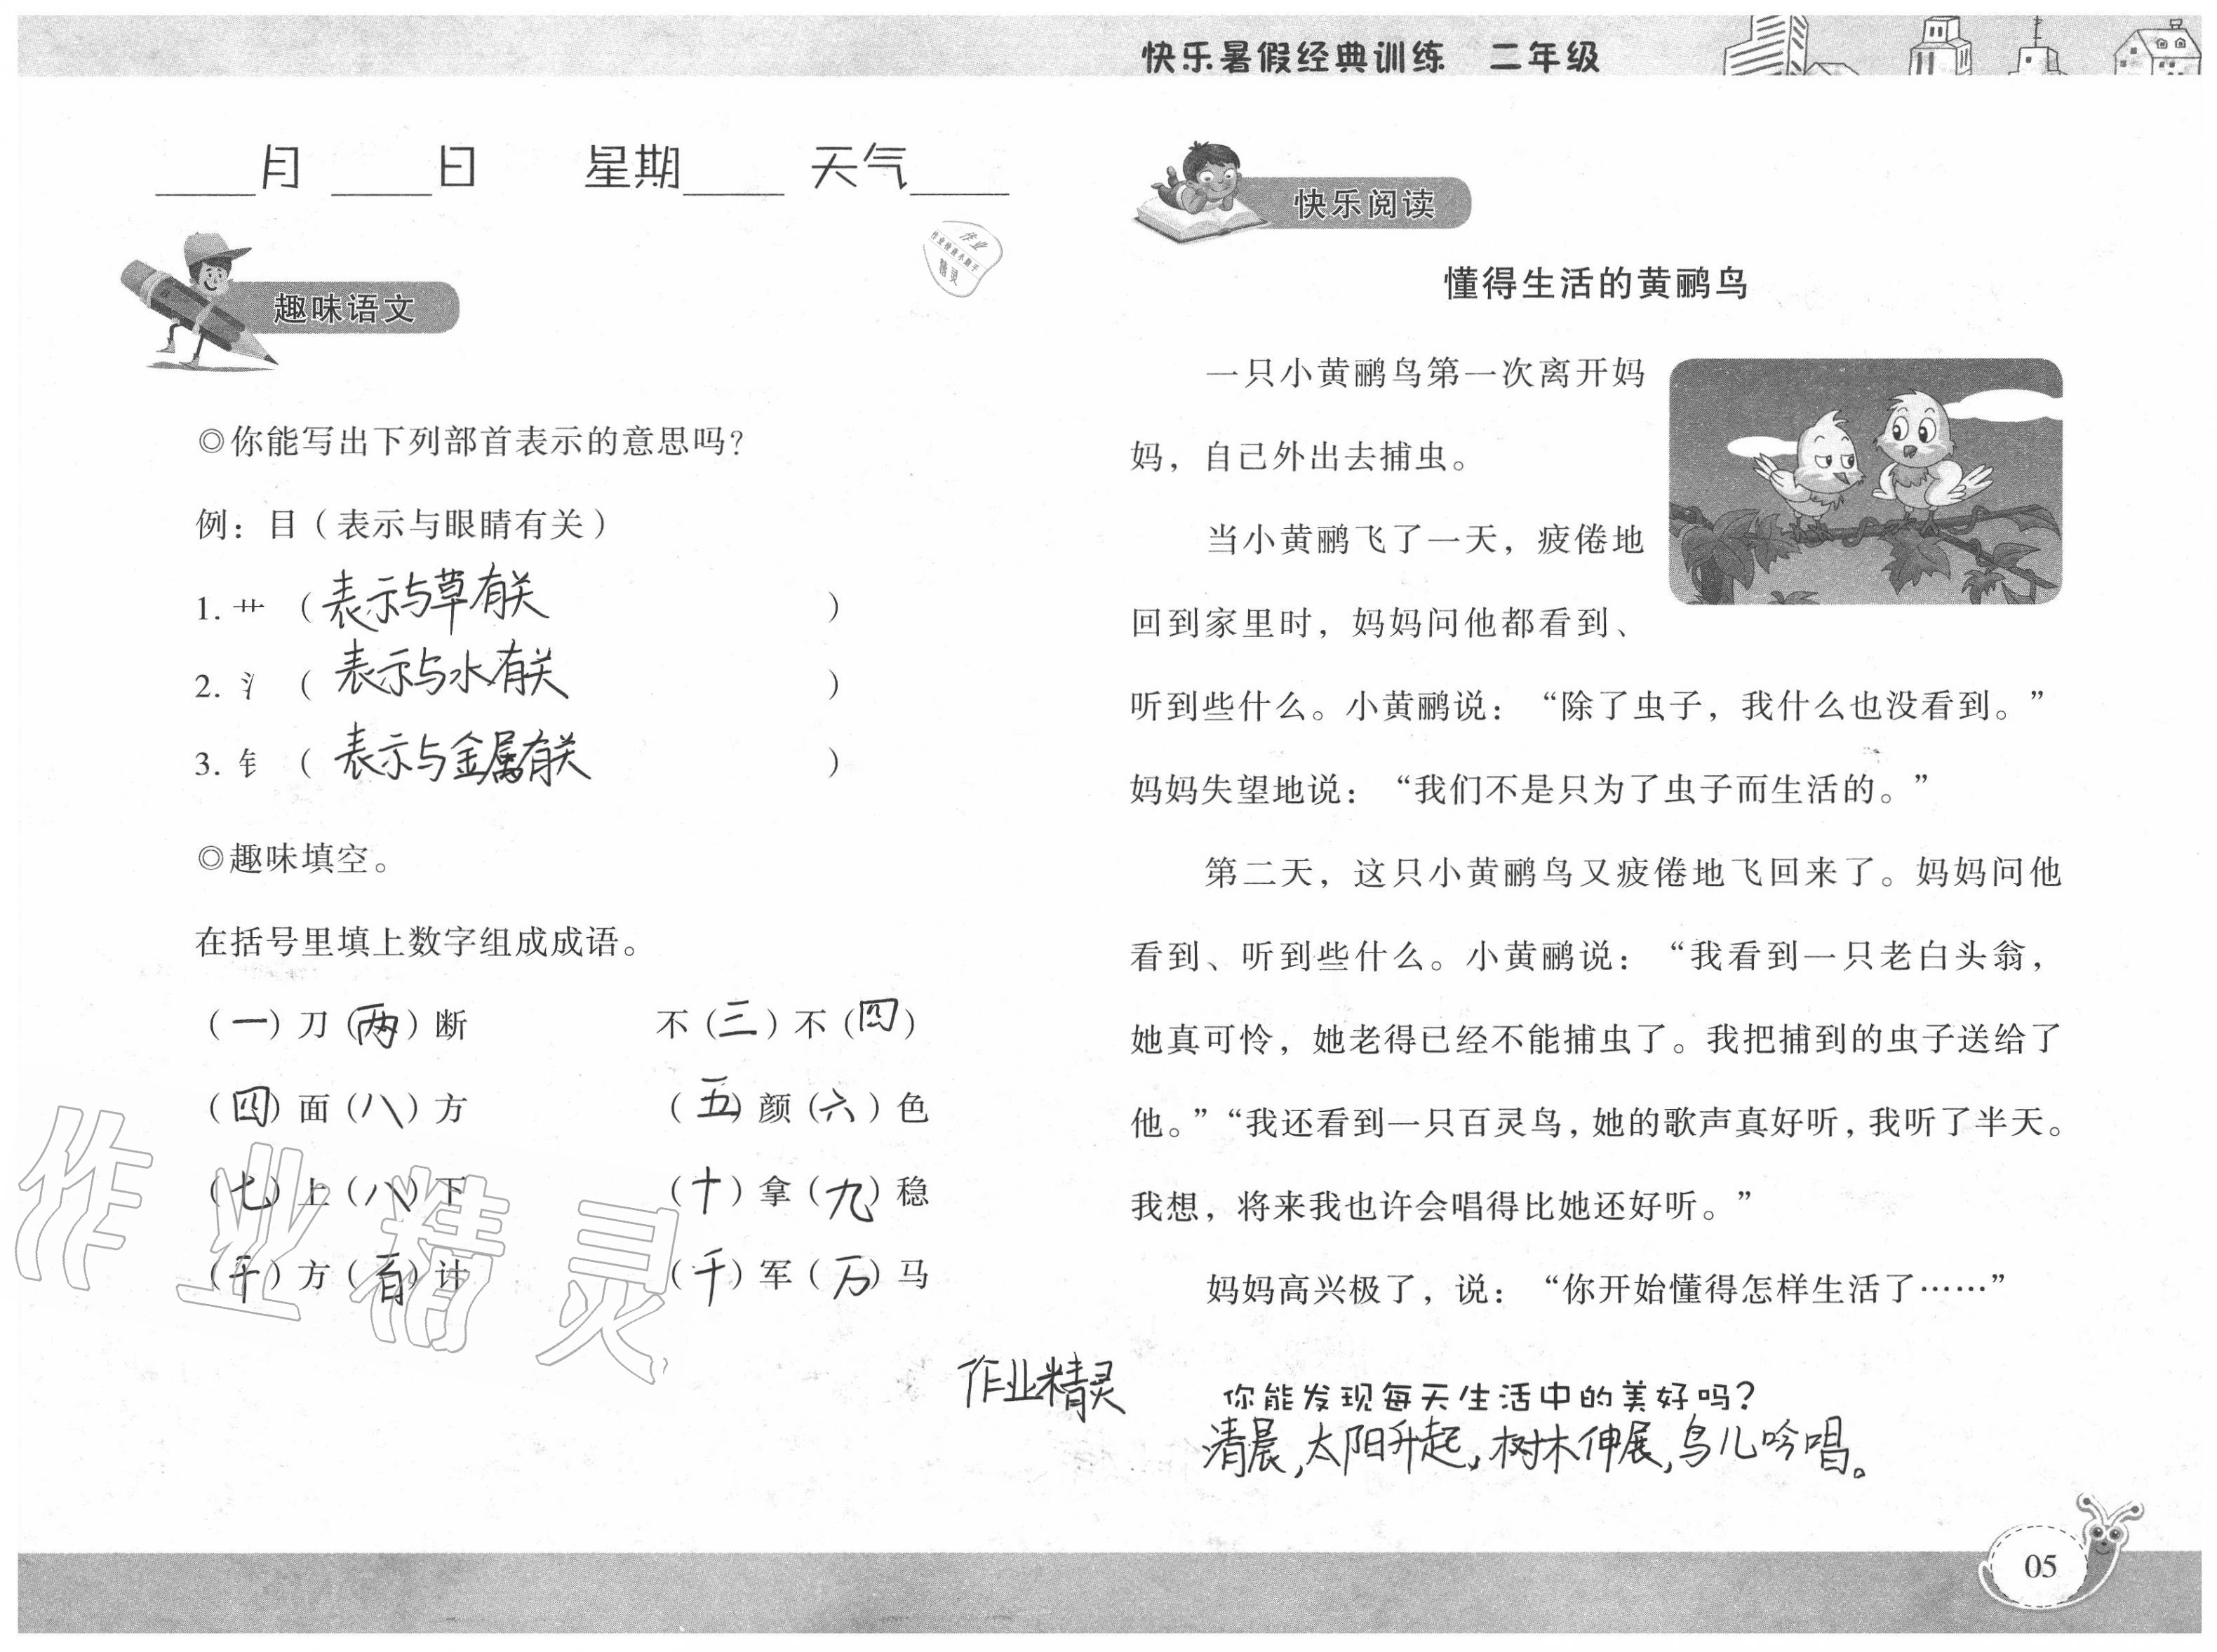 快乐暑假经典训练 二年级
____月 ____日 星期____ 天气____
作业
作业检查小助手
精灵
趣味语文
◎你能写出下列部首表示的意思吗？
例：目（表示与眼睛有关）
1. 艹 （表示与草有关）
2. 氵 （表示与水有关）
3. 钅 （表示与金属有关）
◎趣味填空。
在括号里填上数字组成成语。
（一）刀（两）断 不（三）不（四）
（四）面（八）方 （五）颜（六）色
（七）上（八）下 （十）拿（九）稳
（千）方（百）计 （千）军（万）马
作业精灵
作业精灵
快乐阅读
懂得生活的黄鹂鸟
一只小黄鹂鸟第一次离开妈
妈，自己外出去捕虫。
当小黄鹂飞了一天，疲倦地
回到家里时，妈妈问他都看到、
听到些什么。小黄鹂说：“除了虫子，我什么也没看到。”
妈妈失望地说：“我们不是只为了虫子而生活的。”
第二天，这只小黄鹂鸟又疲倦地飞回来了。妈妈问他
看到、听到些什么。小黄鹂说：“我看到一只老白头翁，
她真可怜，她老得已经不能捕虫了。我把捕到的虫子送给了
他。”“我还看到一只百灵鸟，她的歌声真好听，我听了半天。
我想，将来我也许会唱得比她还好听。”
妈妈高兴极了，说：“你开始懂得怎样生活了……”
你能发现每天生活中的美好吗？
清晨，太阳升起，树木伸展，鸟儿吟唱。
05